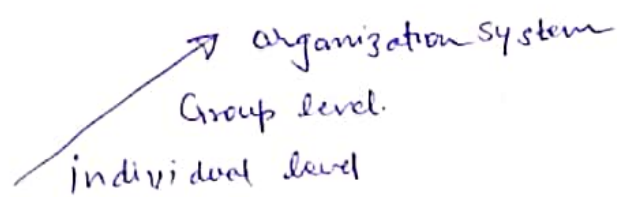 organization system
Group level.
individual level